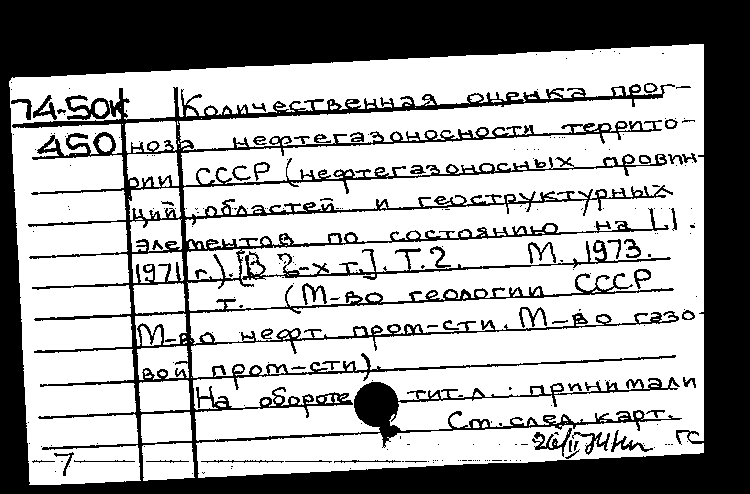 74-50к Количественная оценка прог-
450 ноза нефтегазоносности террито-
рии СССР (нефтегазоносных провин-
ций, областей и геоструктурных
элементов по состоянию на 1.I.
1971 г.). [В 2-х т.]. Т. 2. М., 1973.
т. (М-во геологии СССР
М-во нефт. пром-сти. М-во газо-
вой пром-сти).
На обороте тит.л.: принимали
См. след. карт.
7 26/II ГС